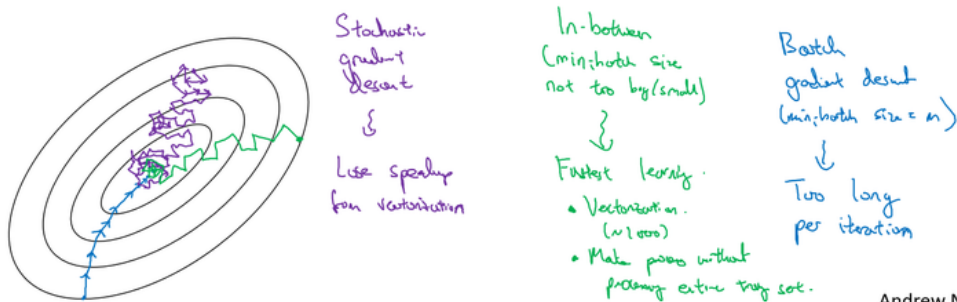 Stochastic
gradient
descent
Lose speedup
from vectorization
In-between
(minibatch size
not too big/small)
Fastest learning.
• Vectorization.
(~1000)
• Make progress without
processing entire training set.
Batch
gradient descent
(minibatch size = m)
Too long
per iteration
Andrew N